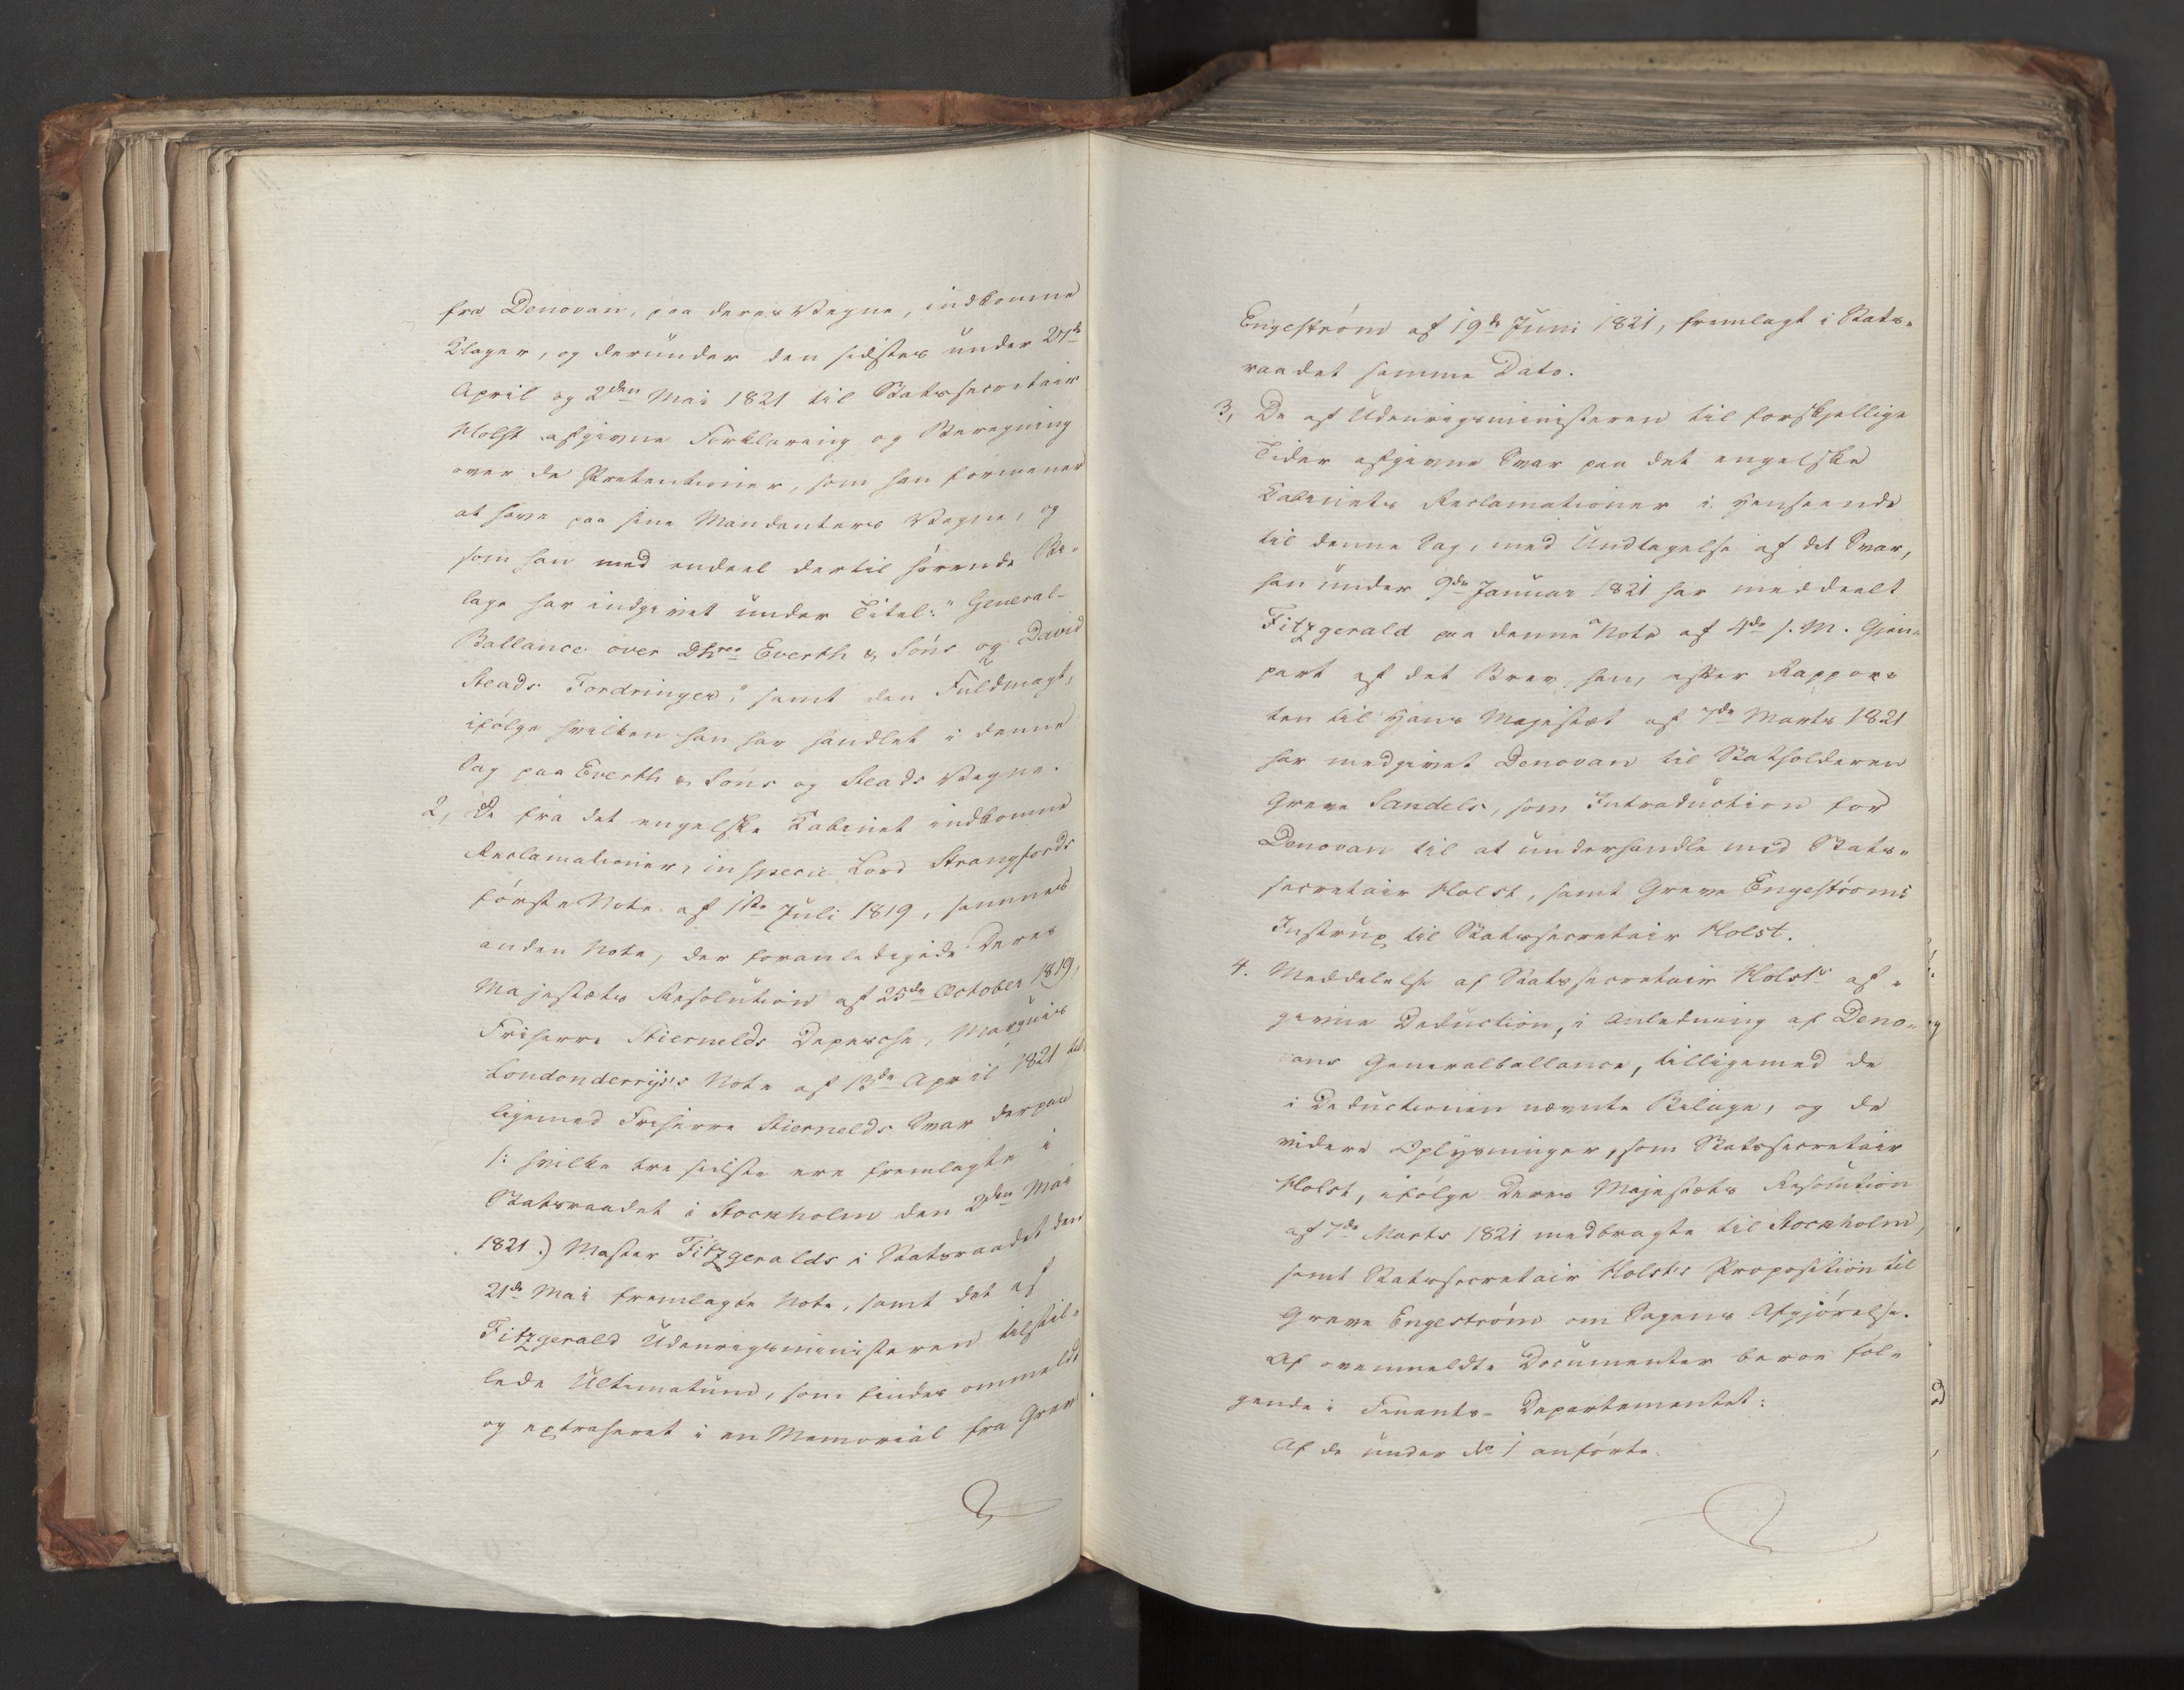 fra Denovan, paa deres Vegne, indkomne
Klager, og derunder den sidstes under 21de
April og 2den Mai 1821 til Statssecretair
Holst afgivne Forklaring og Beregning
over de Prætentioner, som han formener
at have paa sine Mandanters Vegne, og
som han med endeel dertil hørende Bi-
lage har indgivet under Titel: "General-
Ballance over Dhrrs Everth & Sóns og David
Reads Fordringer", samt den Fuldmagt,
ifølge hvilken han har handlet i denne
Sag paa Everth & Sóns og Reads Vegne.
2, De fra det engelske Kabinet indkomne
Reclamationer, in specie Lord Strangfords
første Note af 1ste Juli 1819, sammes
anden Note, der foranledigede Deres
Majestæts Resolution af 25de October 1819,
Friherre Stiernelds Depesche, Marquis
Londonderrys's Note af 13de April 1821 til-
ligemed Friherre Stiernelds Svar derpaa
/: hvilke tre sidste ere fremlagte i
Statsraadet i Stockholm den 2den Mai
1821.) Master Fitzgeralds i Statsraadet den
21de Mai fremlagte Note, samt det af
Fitzgerald Udenrigsministeren tilstil-
lede Ultimatum, som findes ommeldt
og extraheret i en Memorial fra Grev
Engestrøm af 19de Juni 1821, fremlagt i Stats-
raadet samme Dato.
3, De af Udenrigsministeren til forskjellige
Tider afgivne Svar paa det engelske
Kabinets Reclamationer i Henseende
til denne Sag, med Undtagelse af det Svar,
han under 9de Januar 1821 har meddeelt
Fitzgerald paa denne Note af 4de s. M. Gjen-
part af det Brev, han, efter Rappor-
ten til Hans Majestæt af 7de Marts 1821
har medgivet Denovan til Statholderen
Greve Sandels, som Introduction for
Denovan til at underhandle med Stats-
secretair Holst, samt Greve Engestrøms
Instrux til Statssecretair Holst.
4. Meddelelse af Statssecretair Holsts af-
givne Deduction, i Anledning af Deno-
vans Generalballance, tilligemed de
i Deductionen nævnte Bilage, og de
videre Oplysninger, som Statssecretair
Holst, ifølge Deres Majestæts Resolution
af 7de Marts 1821 medbragte til Stockholm,
samt Statssecretair Holst's Proposition til
Greve Engestrøm om Sagens Afgjørelse.
Af ovenmeldte Documenter beroe føl-
gende i Finants-Departementet:
Af de under No 1 anførte.